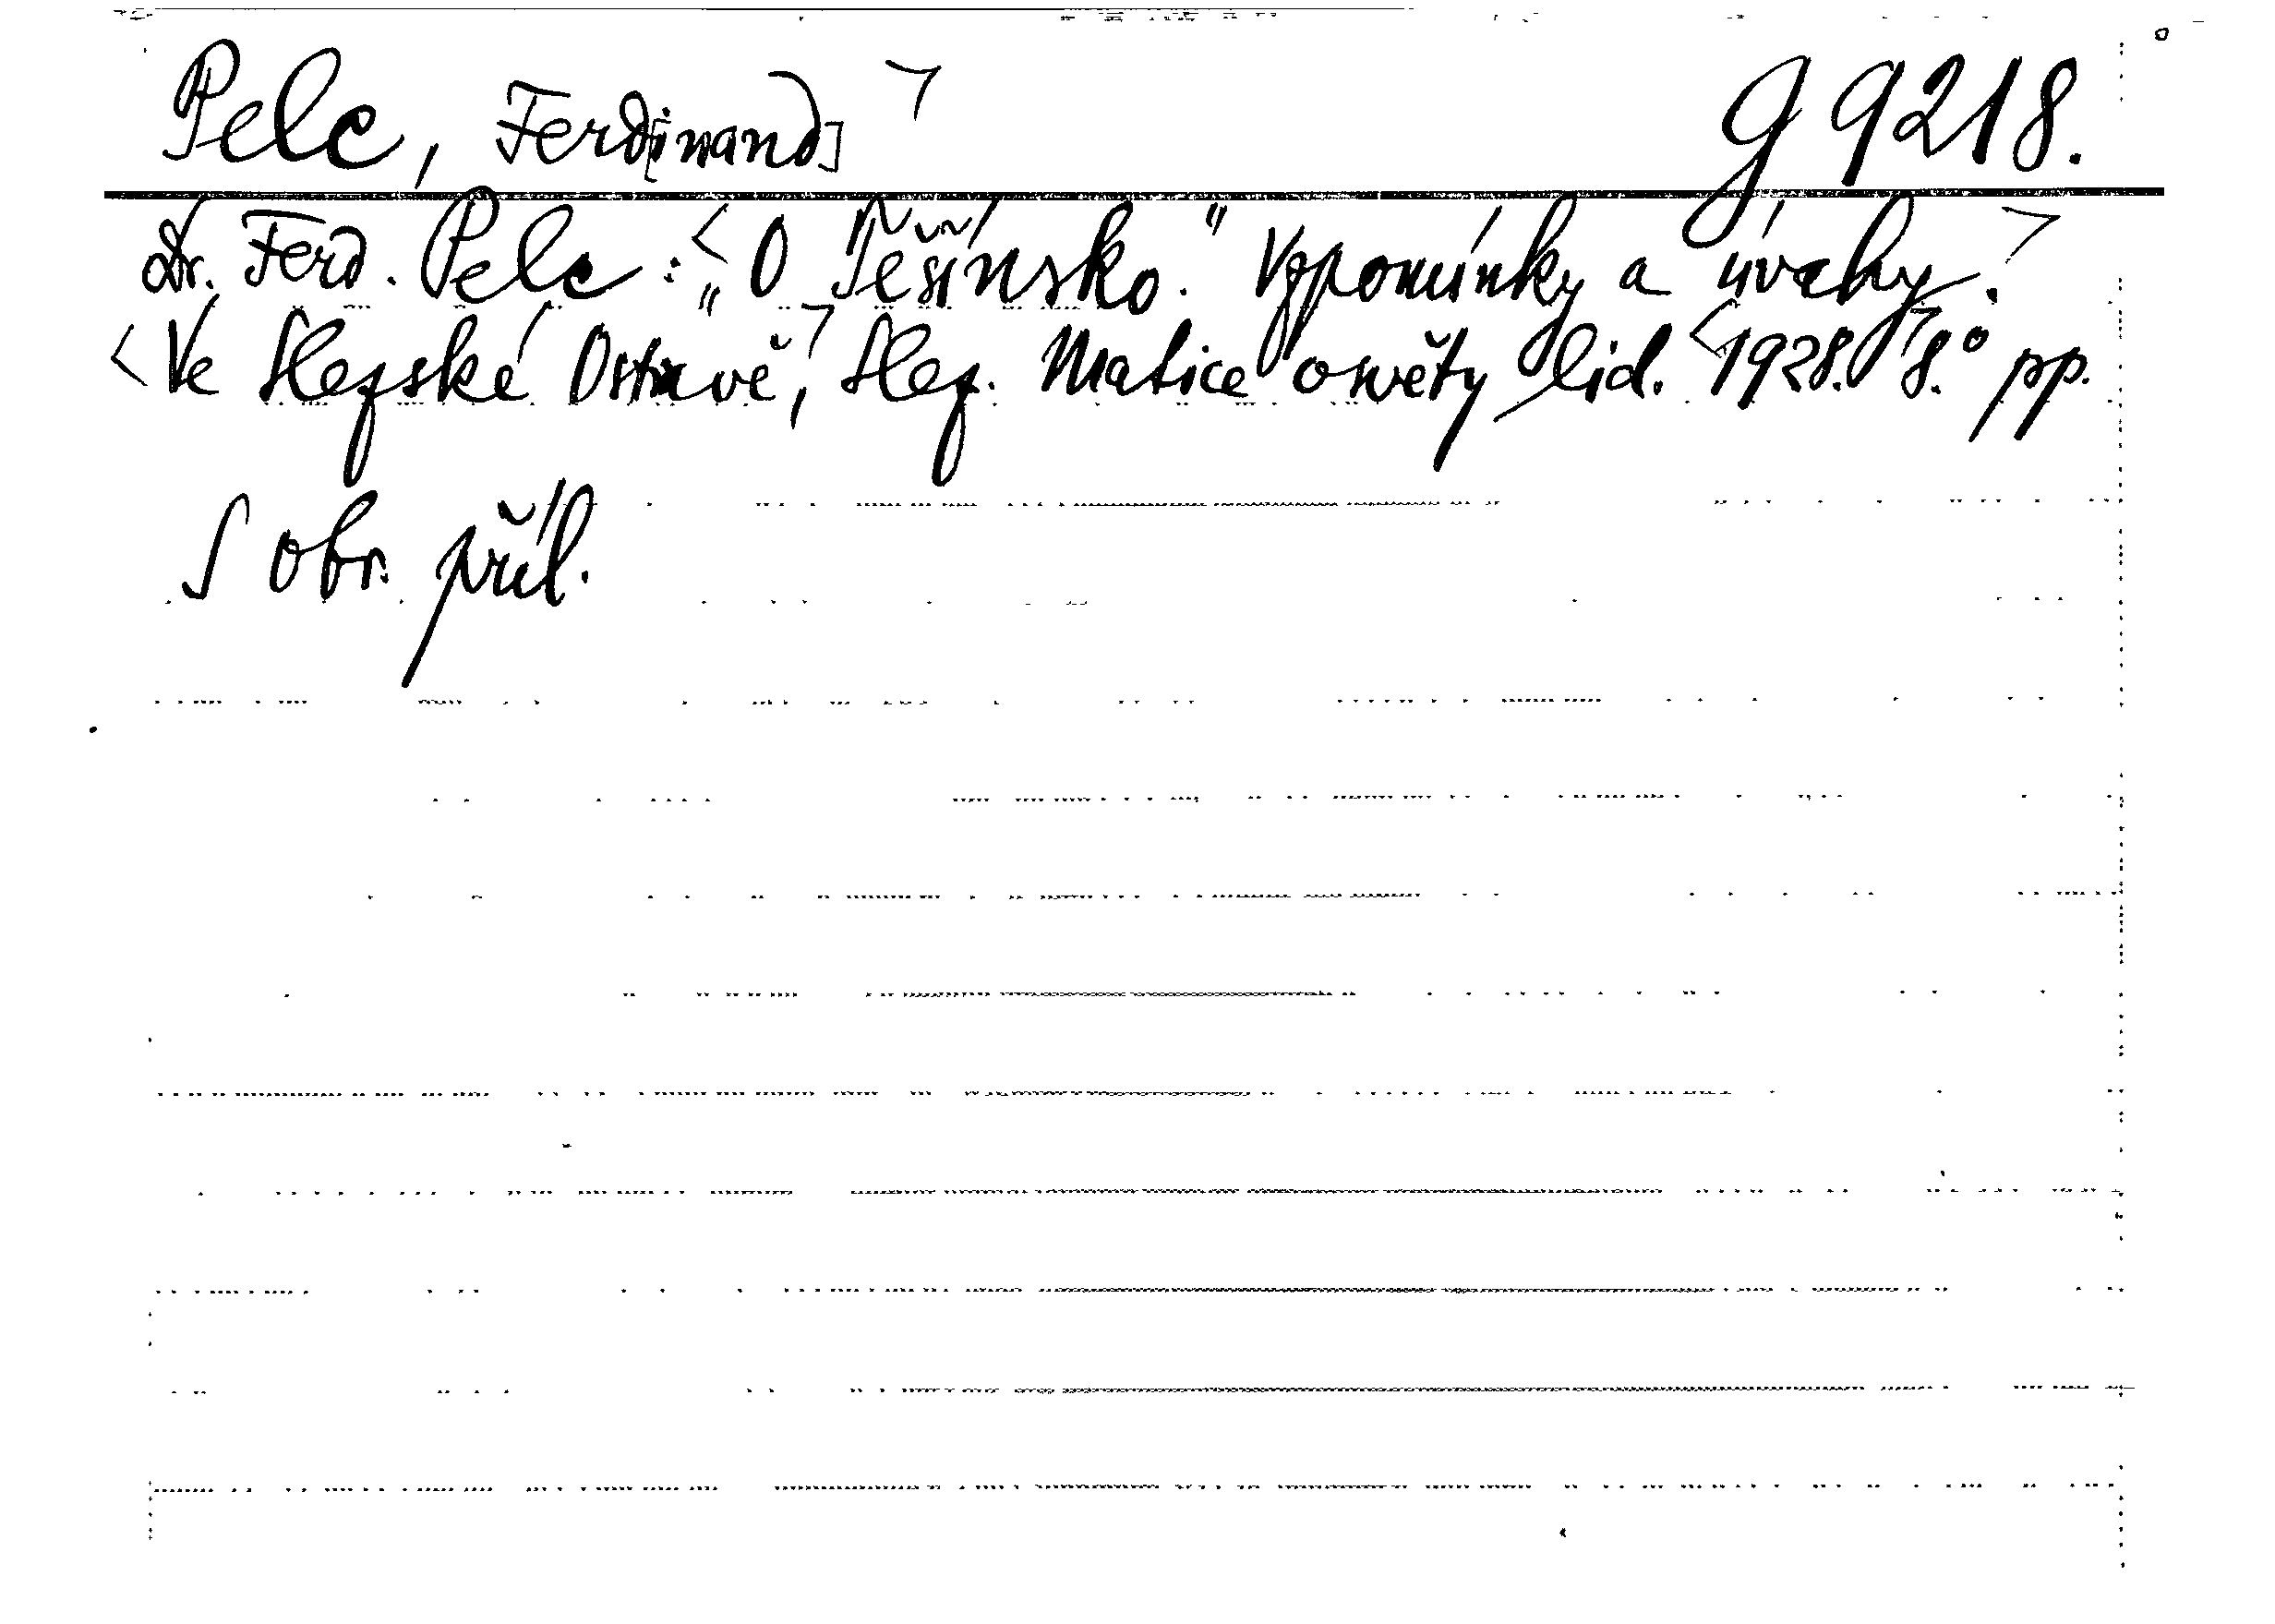 Pelc, Ferd[inand] ㄱ g 9218.
Dr. Ferd. Pelc: <„O Těšínsko." Vzpomínky a úvahy.>
<Ve Slezské Ostravě,> Slez. Matice osvěty lid. <1928.> 8.° pp.
S obr. příl.